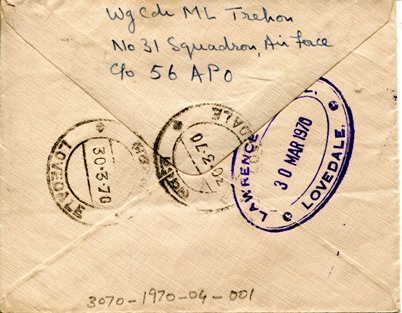 Wg Cdr ML Trehon
No 31 Squadron, Air Force
C/o 56 APO
LOVEDALE
30-3-70
30-3-70
LAWRENCE
30 MAR 1970
LOVEDALE.
3070-1970-04-001